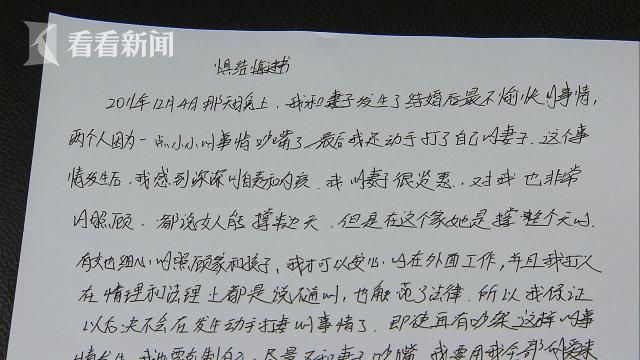 看看新闻
具结悔过书
2011年12月4日那天晚上，我和妻子发生了结婚后最不愉快的事情，
两个人因为一点小小的事情吵嘴了，最后我还动手打了自己的妻子。这个事
情发生后，我感到深深的自责和内疚。我的妻子很贤惠，对我也非常
的照顾。都说女人能撑半边天，但是在这个家她是撑整个天的。
有她细心的照顾家和孩子，我才可以安心的在外面工作，并且我打人
在情理和法理上都是说不通的，也触犯了法律。所以我保证
以后决不会在发生动手打妻的事情了。即使再有吵架这样的事
情发生，我也要克制自己，尽量不和妻子吵嘴。我要用我全部的